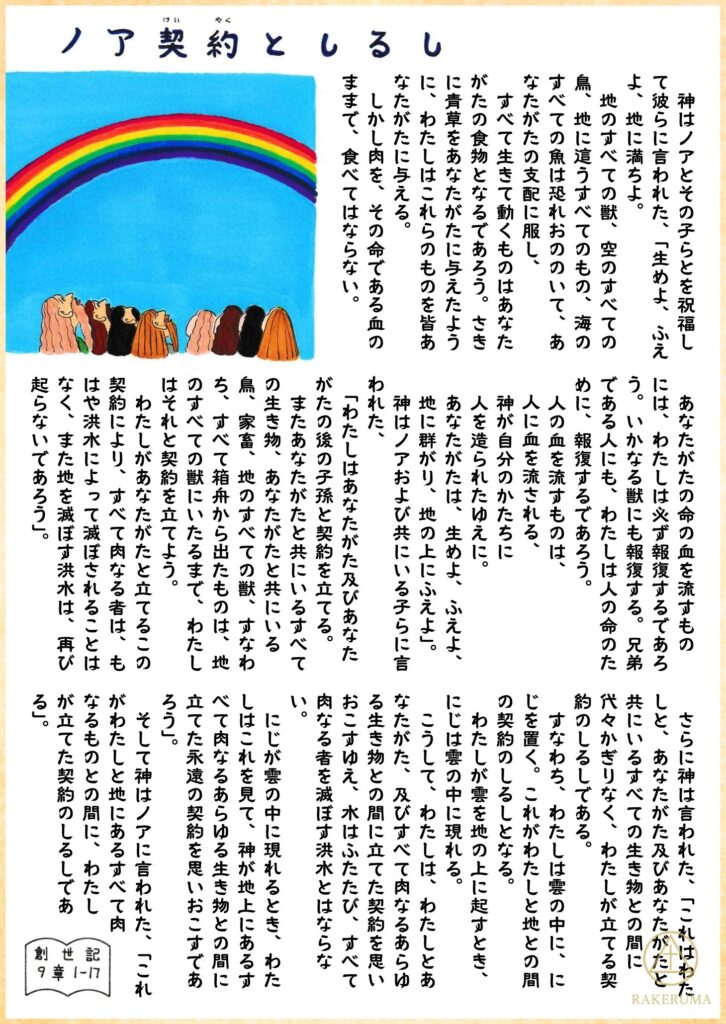 ノア契約としるし
けい やく
神はノアとその子らとを祝福し
て彼らに言われた、「生めよ、ふえ
よ、地に満ちよ。
地のすべての獣、空のすべての
鳥、地に這うすべてのもの、海の
すべての魚は恐れおののいて、あ
なたがたの支配に服し、
すべて生きて動くものはあなた
がたの食物となるであろう。さき
に青草をあなたがたに与えたよう
に、わたしはこれらのものを皆あ
なたがたに与える。
しかし肉を、その命である血の
ままで、食べてはならない。
あなたがたの命の血を流すもの
には、わたしは必ず報復するであろ
う。いかなる獣にも報復する。兄弟
である人にも、わたしは人の命のた
めに、報復するであろう。
人の血を流すものは、
人に血を流される、
神が自分のかたちに
人を造られたゆえに。
あなたがたは、生めよ、ふえよ、
地に群がり、地の上にふえよ」。
神はノアおよび共にいる子らに言
われた、
「わたしはあなたがた及びあなた
がたの後の子孫と契約を立てる。
またあなたがたと共にいるすべて
の生き物、あなたがたと共にいる
鳥、家畜、地のすべての獣、すなわ
ち、すべて箱舟から出たものは、地
のすべての獣にいたるまで、わたし
はそれと契約を立てよう。
わたしがあなたがたと立てるこの
契約により、すべて肉なる者は、も
はや洪水によって滅ぼされることは
なく、また地を滅ぼす洪水は、再び
起らないであろう」。
さらに神は言われた、「これはわた
しと、あなたがた及びあなたがたと
共にいるすべての生き物との間に
代々かぎりなく、わたしが立てる契
約のしるしである。
すなわち、わたしは雲の中に、に
じを置く。これがわたしと地との間
の契約のしるしとなる。
わたしが雲を地の上に起すとき、
にじは雲の中に現れる。
こうして、わたしは、わたしとあ
なたがた、及びすべて肉なるあらゆ
る生き物との間に立てた契約を思い
おこすゆえ、水はふたたび、すべて
肉なる者を滅ぼす洪水とはならな
い。
にじが雲の中に現れるとき、わた
しはこれを見て、神が地上にあるす
べて肉なるあらゆる生き物との間に
立てた永遠の契約を思いおこすであ
ろう」。
そして神はノアに言われた、「これ
がわたしと地にあるすべて肉
なるものとの間に、わたし
が立てた契約のしるしであ
る」。
創世記
9章1-17
RAKERUMA